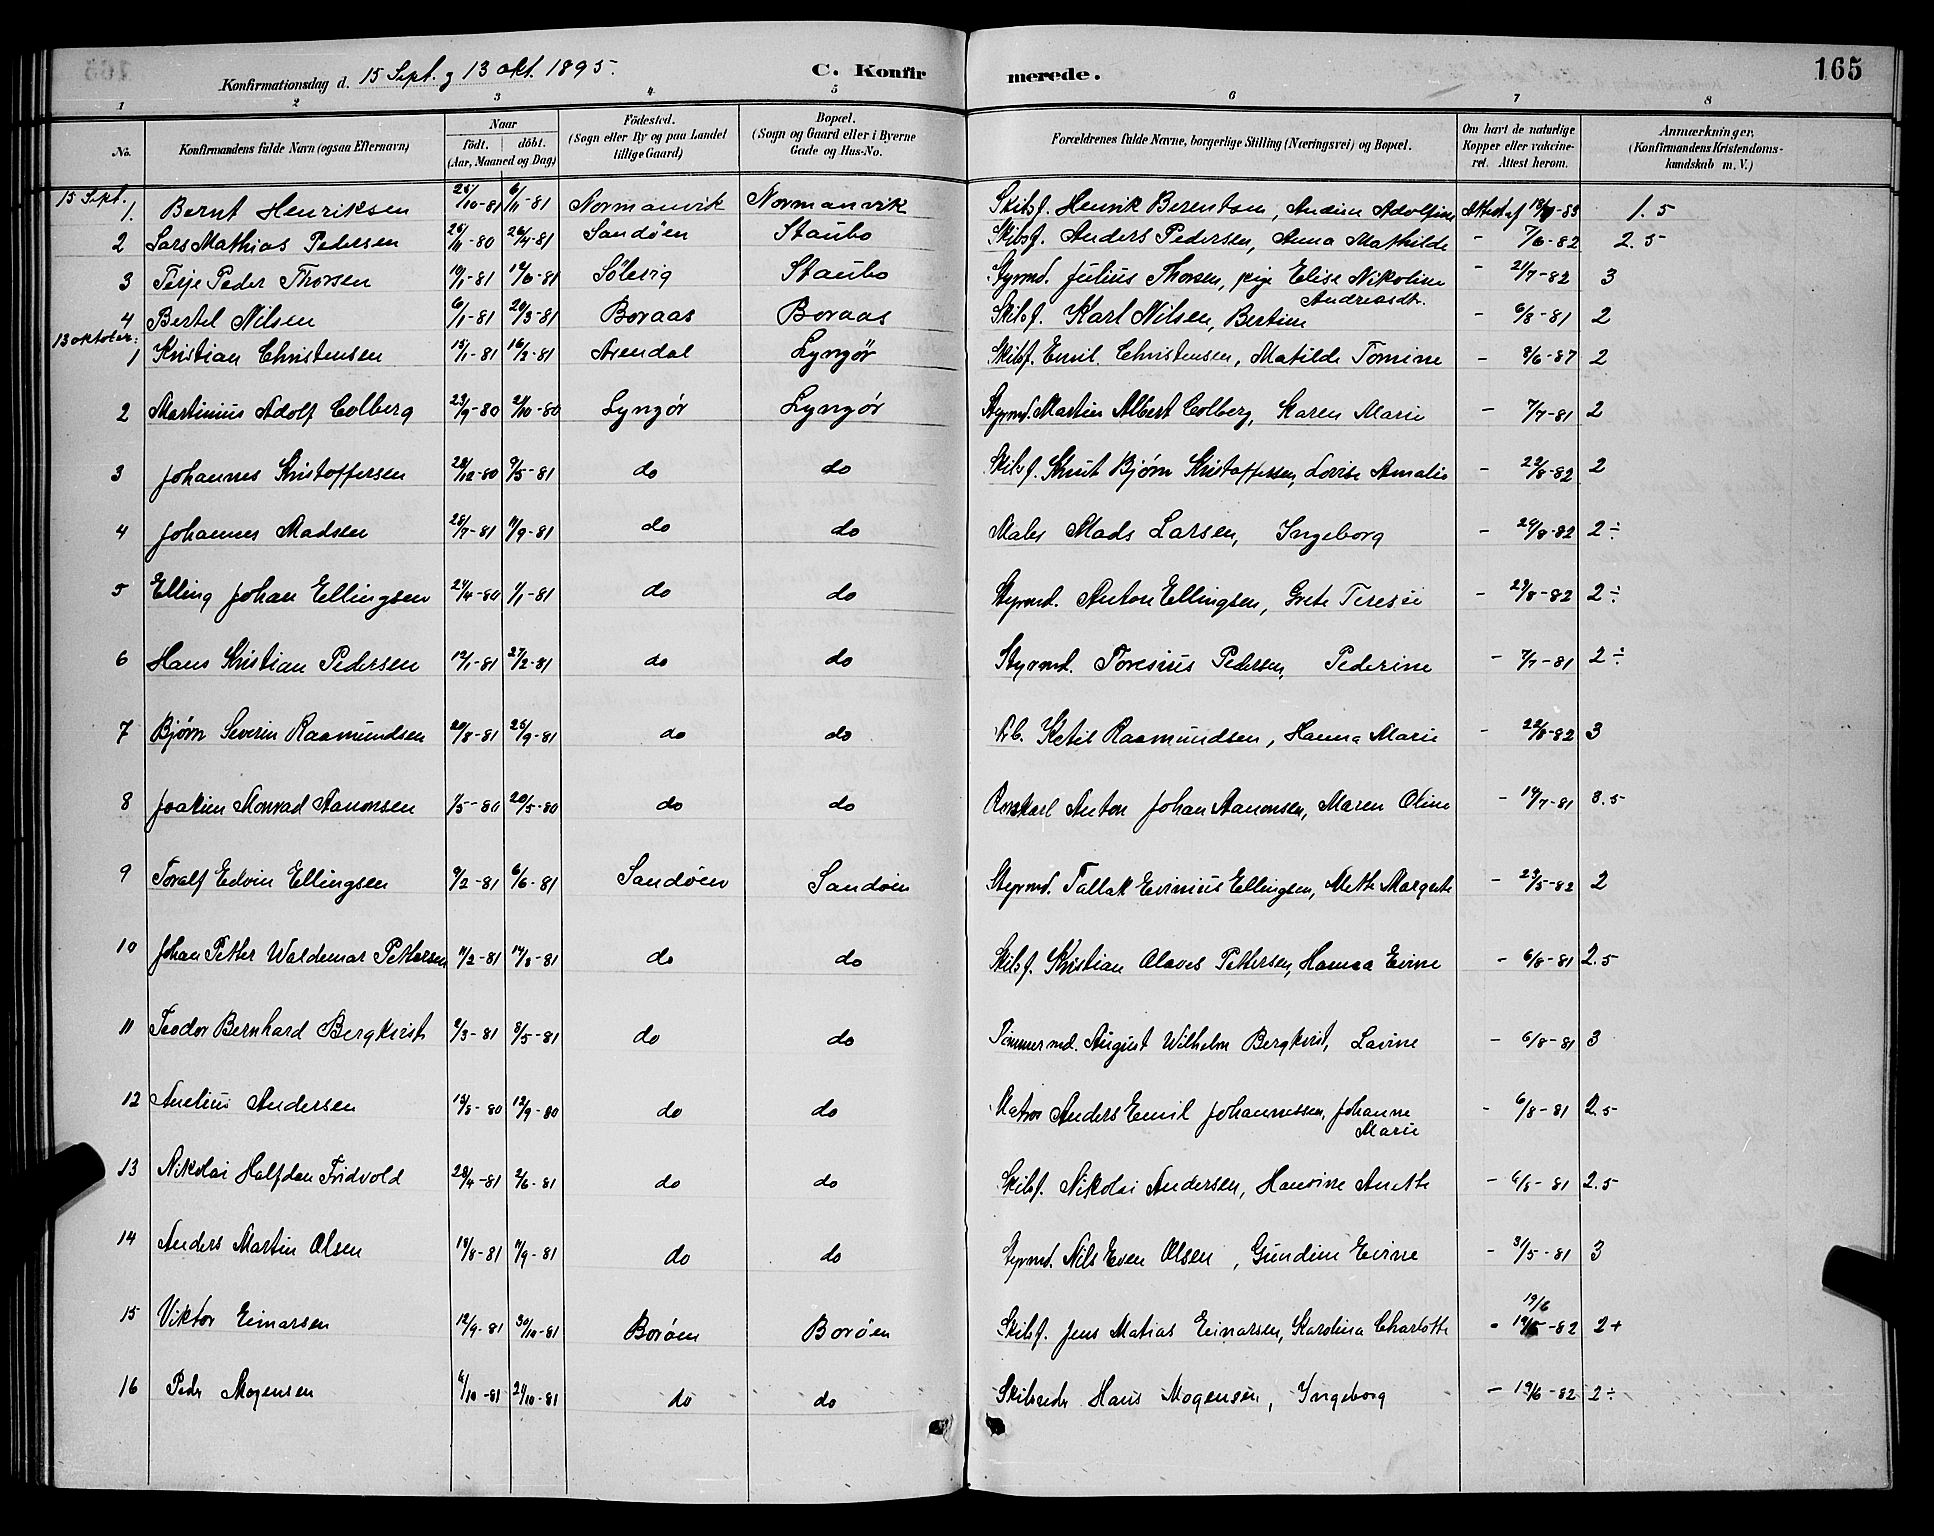 Konfirmationsdag d. 15 Sept. g 13 okt. 1895. C. Konfirmerede. 165
1 2 3 4 5 6 7 8
No. Konfirmandens fulde Navn (ogsaa Efternavn) Naar födt. döbt. (Aar, Maaned og Dag) Födested. (Sogn eller By og paa Landet tillige Gaard) Bopæl. (Sogn og Gaard eller i Byerne Gade og Hus-No. Forældrenes fulde Navne, borgerlige Stilling (Næringsvei) og Bopæl. Om havt de naturlige Kopper eller vakcineret. Attest herom. Anmærkninger. (Konfirmandens Kristendomskundskab m. V.)
15 Sept.
1. Bernt Henriksen 25/10-81 6/11-81 Normanvik Normanvik Skibsf. Henrik Berentsen, Andine Adolfine Attest af 1.5
2 Lars Mathias Pedersen 25/11-80 26/4-81 Sandöen Staubo Skibsf. Anders Pedersen, Anna Mathilde - 7/6-82 2.5
3 Terje Peder Thorsen 10/1-81 12/6-81 Sölevig Staubo Styrmd. Julius Thorsen, pige Elise Nikoline Andreasdtr. - 21/7-82 3
4 Bertel Nilsen 6/1-81 20/3-81 Boraas Boraas Skibsf. Karl Nilsen, Bertine - 6/8-81 2
13 oktober:
1 Kristian Christensen 15/1-81 16/2-81 Arendal Lyngör Skibsf. Emil Christensen, Matilde Tomine - 8/6-87 2
2 Martinius Adolf Colberg 23/9-80 2/10-80 Lyngör Lyngör Styrmd. Martin Albert Colberg, Karen Marie - 7/7-81 2
3 Johannes Kristoffersen 28/12-80 9/5-81 do do Skibsf. Knut Bjørn Kristoffersen, Lovise Amalie - 22/8-82 2
4 Johannes Madsen 28/7-81 11/9-81 do do Maler Mads Larsen, Ingeborg - 29/8-82 2÷
5 Elling Johan Ellingsen 24/4-80 1/1-81 do do Styrmd. Anton Ellingsen, Grete Teresie - 29/8-82 2÷
6 Hans Kristian Pedersen 12/1-81 27/2-81 do do Styrmd. Toresius Pedersen, Pederine - 7/7-81 2÷
7 Bjørn Severin Raamundsen 20/8-81 25/9-81 do do Arb. Ketil Raamundsen, Hanna Marie - 22/8-82 3
8 Joakim Monrad Aanonsen 1/5-80 20/5-80 do do Rorskarl Anton Johan Aanonsen, Maren Oline - 14/7-81 3.5
9 Toralf Edvin Ellingsen 9/2-81 6/6-81 Sandöen Sandöen Styrmd. Tallak Evinius Ellingsen, Mette Margrete - 23/5-82 2
10 Johan Petter Waldemar Pettersen 11/2-81 14/8-81 do do Skibsf. Kristian Olaves Pettersen, Hanna Evine - 6/8-81 2.5
11 Teodor Bernhard Bergkvist 9/3-81 8/5-81 do do Tömmermd. August Wilhelm Bergkvist, Lavine - 6/8-81 3
12 Anelius Andersen 13/8-80 12/9-80 do do Matros Anders Emil Johannessen, Johanne Marie - 6/8-81 2.5
13 Nikolai Halfdan Fridvold 28/4-81 2/6-81 do do Skibsf. Nikolai Andersen, Hansine Anette - 6/8-81 2.5
14 Anders Martin Olsen 18/8-81 11/9-81 do do Styrmd. Nils Even Olsen, Gundine Evine - 3/5-81 3
15 Viktor Einarsen 12/9-81 30/10-81 Boröen Boröen Skibsf. Jens Matias Einarsen, Karolina Charlotte - 19/6 -82 2+
16 Peder Mogensen 6/10-81 2/10-81 do do Skibsreder Hans Mogensen, Ingeborg - 19/6-82 2÷